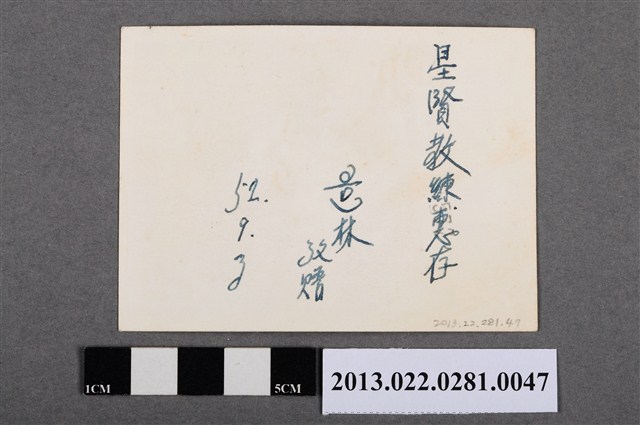 星賢教練惠存
林
敬贈
52.9.3
2013.22.281.47
1CM
5CM
2013.022.0281.0047